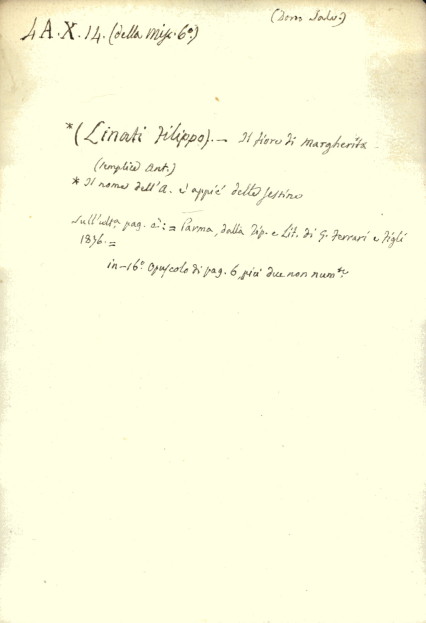 4 A.X.14. (della Misc. 6ª)
(Dom
*(Linati Filippo). — Il fiore di Margherita
(semplice Ant.)
* Il nome dell'A. è appié delle sestine
Sull'ultª pag. è: = Parma, dalla Tip. e Lit. di G. Ferrari e Figli
1876. =
in-16º Opuscolo di pag. 6, più due non numte